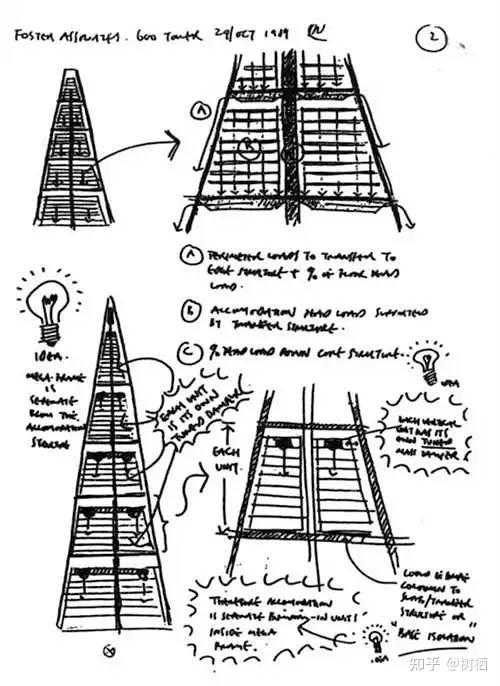 FOSTER ASSOCIATES. 600 TOWER 29/OCT 1989
2
A
B
A PERIMETER LOADS TO TRANSFER TO
EDGE STRUCTURE + % OF FLOOR DEAD
LOAD.
B ACCOMODATION DEAD LOAD SUPPORTED
BY TRANSFER STRUCTURE.
C % DEAD LOAD DOWN CORE STRUCTURE.
IDEA
IDEA.
MEGA-FRAME IS
SEPARATE
FROM THE
ACCOMODATION
STRUCTURE
EACH UNIT
IS ITS OWN
TUNED DAMPER
EACH
UNIT.
EACH VERTICAL
UNIT HAS ITS
OWN TUNED
MASS DAMPER
COULD BE
COLUMN TO
TRANSFER
STRUCTURE OR
"BASE ISOLATION"
THEREFORE ACCOMODATION
IS SEPARATE BUILDING-IN UNIT!
INSIDE MEGA
FRAME.
IDEA
知乎 @树栖